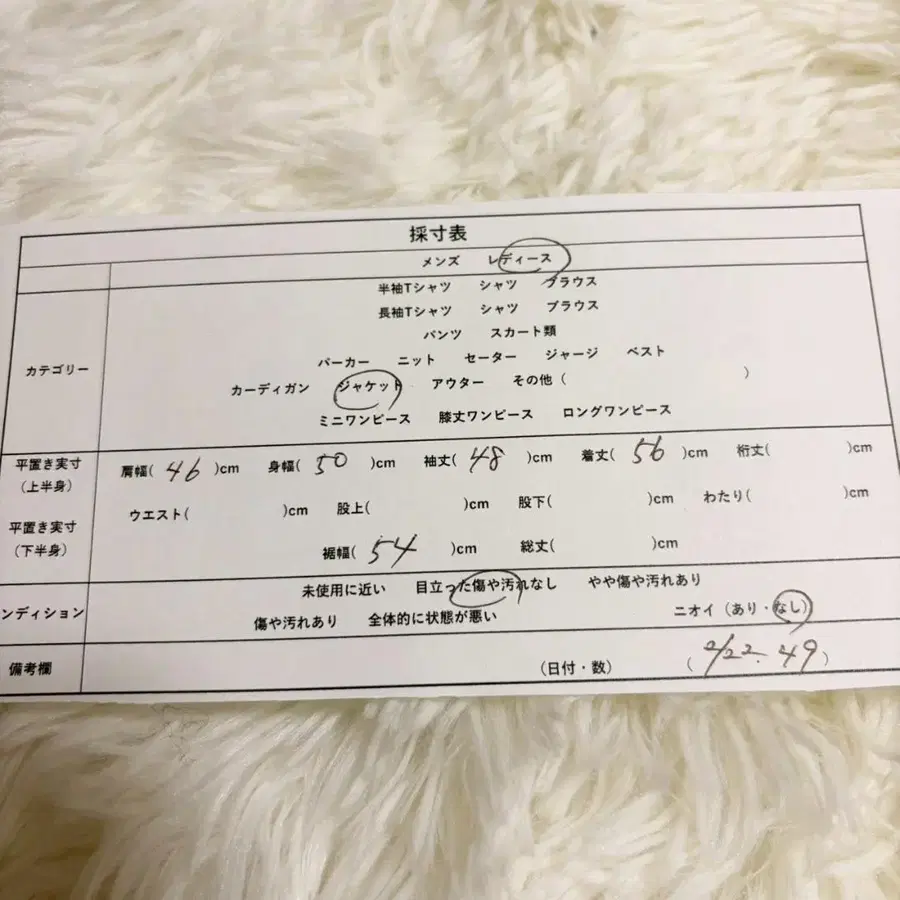 採寸表
メンズ レディース
半袖Tシャツ シャツ ブラウス
長袖Tシャツ シャツ ブラウス
パンツ スカート類
パーカー ニット セーター ジャージ ベスト
カテゴリー
カーディガン ジャケット アウター その他( )
ミニワンピース 膝丈ワンピース ロングワンピース
平置き実寸
(上半身)
肩幅( 46 )cm 身幅( 50 )cm 袖丈( 48 )cm 着丈( 56 )cm 裄丈( )cm
平置き実寸
(下半身)
ウエスト( )cm 股上( )cm 股下( )cm わたり( )cm
裾幅( 54 )cm 総丈( )cm
ンディション
未使用に近い 目立った傷や汚れなし やや傷や汚れあり
傷や汚れあり 全体的に状態が悪い ニオイ(あり・なし)
備考欄 (日付・数) ( 2/22. 49 )